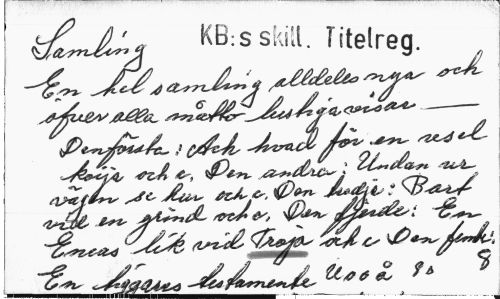 Samling KB:s skill. Titelreg.
En hel samling alldeles nya och
öfver alla måtto lustiga visor —
Den första: Ach hvad för en usel
koija och c, Den andra: Undan ur
vägen se hur och c, Den tredje: Bort
vid en grind och c, Den fjerde: En
Eneas lik vid Troja och c Den femte:
En byggares testamente U o o å 8